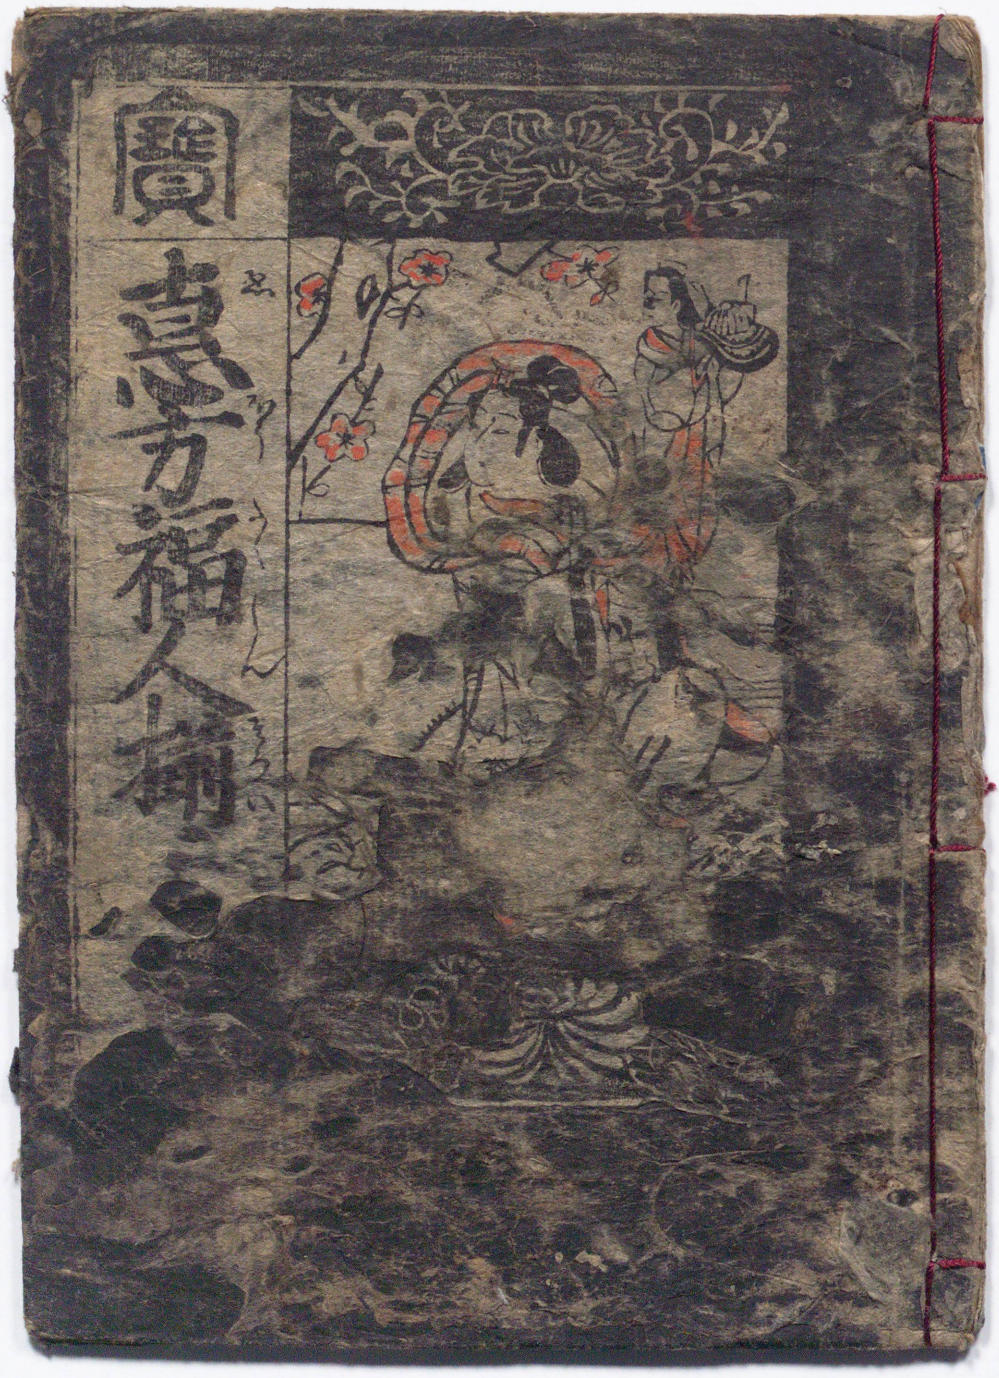 寶
恵方福人揃
ゑ
ほう
ふく
じん
そろひ